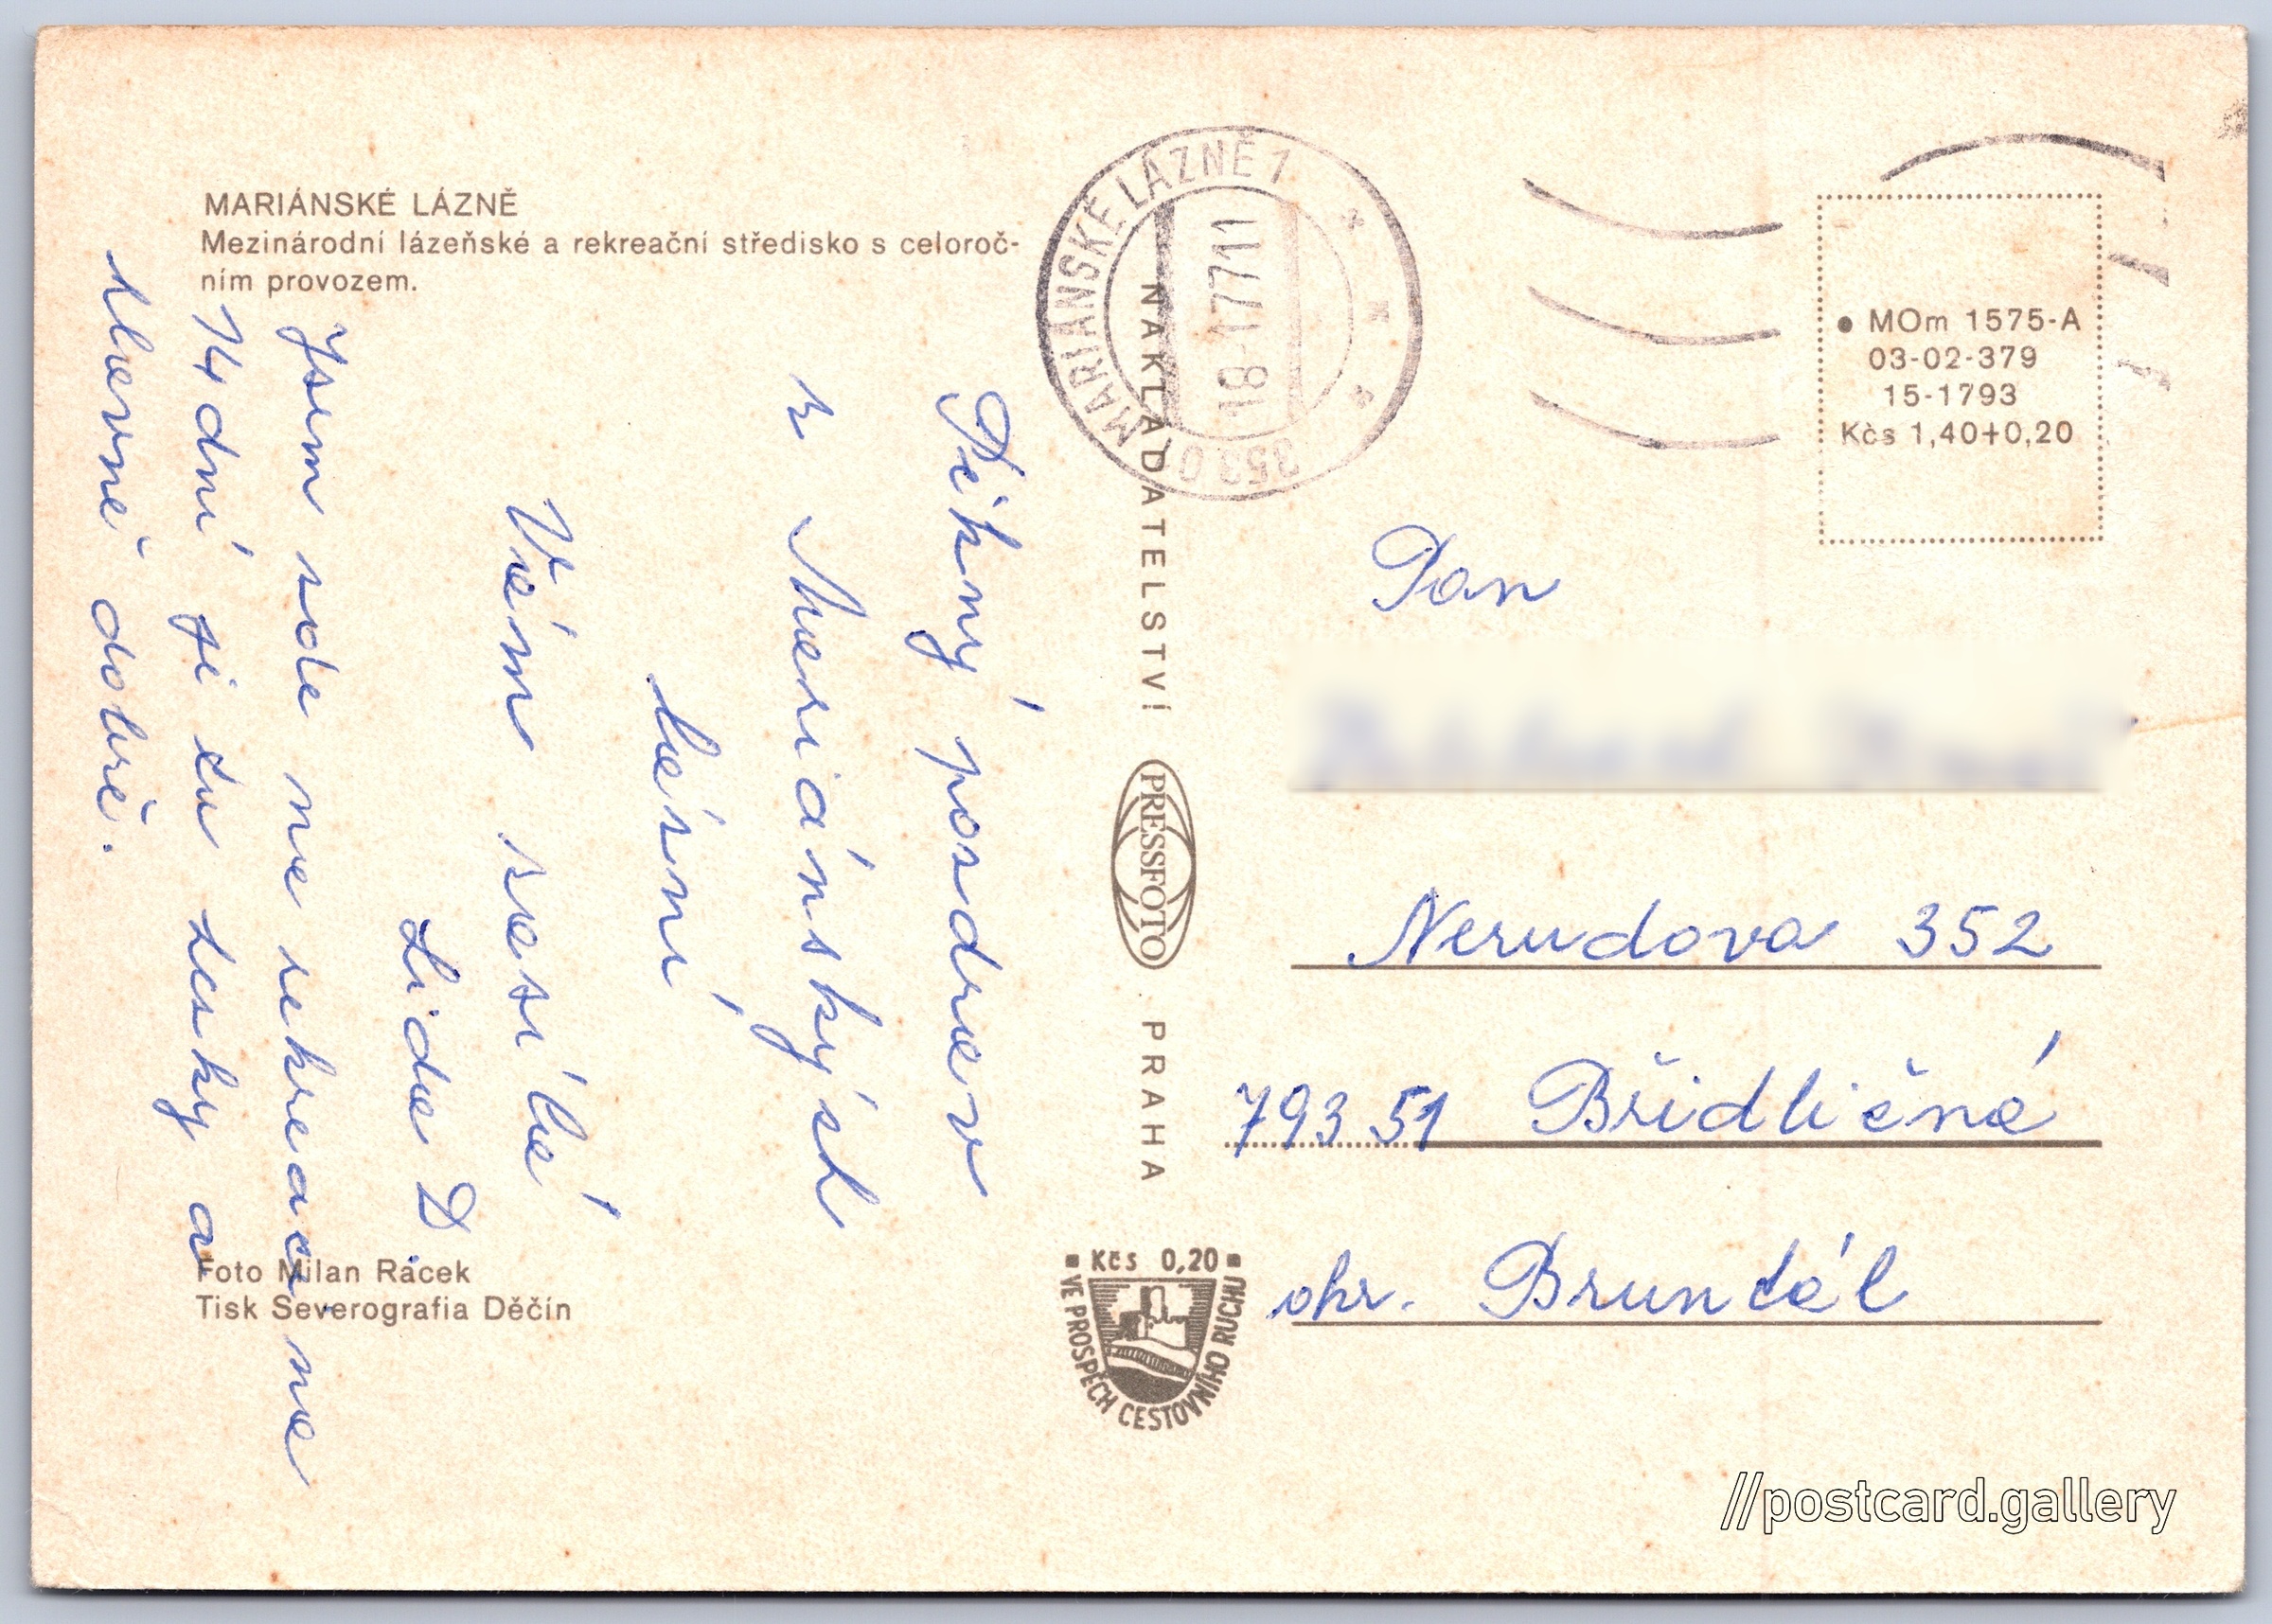 MARIÁNSKÉ LÁZNĚ
Mezinárodní lázeňské a rekreační středisko s celoroč-
ním provozem.
Pěkný pozdrav
z Mariánských
lázní
Vám zasílá
Lida D.
Jsem zde na rekreaci na
14 dní je tu hezky a
hlavně dobře.
Foto Milan Rácek
Tisk Severografia Děčín
NAKLADATELSTVÍ PRESSFOTO PRAHA
MARIÁNSKÉ LÁZNĚ 1
353 0
Kčs 0,20
VE PROSPĚCH CESTOVNÍHO RUCHU
MOm 1575-A
03-02-379
15-1793
Kčs 1,40+0,20
Pan
Nerudova 352
793 51 Břidličná
okr. Bruntál
//postcard.gallery